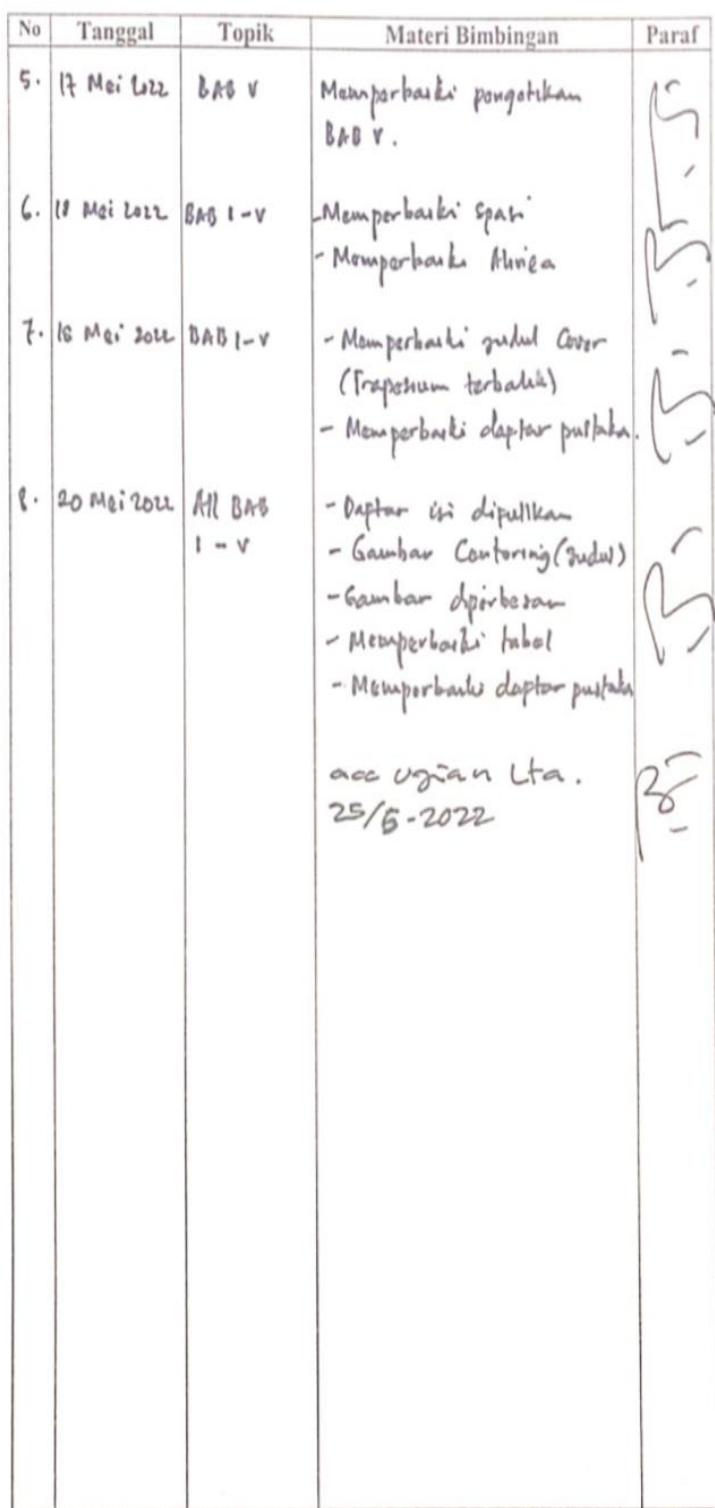 No Tanggal Topik Materi Bimbingan Paraf
5. 17 Mei 2022 BAB V Memperbaiki pengetikan
BAB V.
6. 18 Mei 2022 BAB I-V - Memperbaiki spasi
- Memperbaiki Alinea
7. Mei 2022 BAB I-V - Memperbaiki judul Cover
(Trapesium terbalik)
- Memperbaiki daptar pustaka.
8. 20 Mei 2022 All BAB - Daptar isi
I - V - Gambar (judul)
- Gambar diperbesar
- Memperbaiki tabel
- Memperbaiki daptar pustaka
acc ugian Lta.
25/5-2022